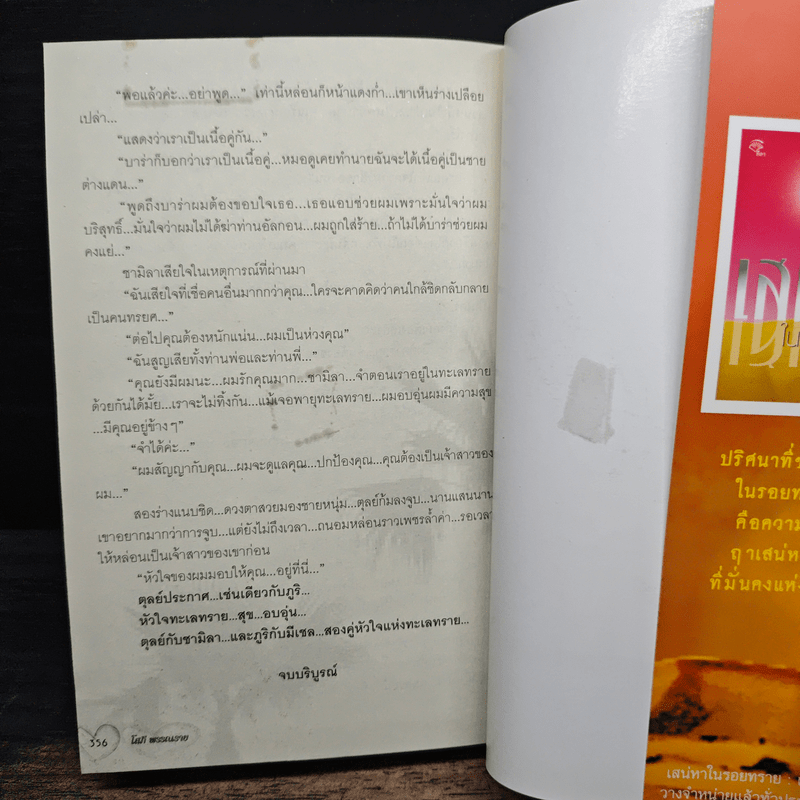 “พอแล้วค่ะ...อย่าพูด...” เท่านี้หล่อนก็หน้าแดงก่ำ...เขาเห็นร่างเปลือย
เปล่า...
“แสดงว่าเราเป็นเนื้อคู่กัน...”
“บาร่าก็บอกว่าเราเป็นเนื้อคู่...หมอดูเคยทำนายฉันจะได้เนื้อคู่เป็นชาย
ต่างแดน...”
“พูดถึงบาร่าผมต้องขอบใจเธอ...เธอแอบช่วยผมเพราะมั่นใจว่าผม
บริสุทธิ์...มั่นใจว่าผมไม่ได้ฆ่าท่านอัลกอน...ผมถูกใส่ร้าย...ถ้าไม่ได้บาร่าช่วยผม
คงแย่...”
ซามิลาเสียใจในเหตุการณ์ที่ผ่านมา
“ฉันเสียใจที่เชื่อคนอื่นมากกว่าคุณ...ใครจะคาดคิดว่าคนใกล้ชิดกลับกลาย
เป็นคนทรยศ...”
“ต่อไปคุณต้องหนักแน่น...ผมเป็นห่วงคุณ”
“ฉันสูญเสียทั้งท่านพ่อและท่านพี่...”
“คุณยังมีผมนะ...ผมรักคุณมาก...ซามิลา...จำตอนเราอยู่ในทะเลทราย
ด้วยกันได้มั้ย...เราจะไม่ทิ้งกัน...แม้เจอพายุทะเลทราย...ผมอบอุ่นผมมีความสุข
...มีคุณอยู่ข้างๆ”
“จำได้ค่ะ...”
“ผมสัญญากับคุณ...ผมจะดูแลคุณ...ปกป้องคุณ...คุณต้องเป็นเจ้าสาวของ
ผม...”
สองร่างแนบชิด...ดวงตาสวยมองชายหนุ่ม...ตุลย์ก้มลงจูบ...นานแสนนาน
เขาอยากมากกว่าการจูบ...แต่ยังไม่ถึงเวลา...ถนอมหล่อนราวเพชรล้ำค่า...รอเวลา
ให้หล่อนเป็นเจ้าสาวของเขาก่อน
“หัวใจของผมมอบให้คุณ...อยู่ที่นี่...”
ตุลย์ประกาศ...เช่นเดียวกับภูริ...
หัวใจทะเลทราย...สุข...อบอุ่น...
ตุลย์กับซามิลา...และภูริกับมีเชล...สองคู่หัวใจแห่งทะเลทราย...
จบบริบูรณ์
356 โสภี พรรณราย
ปริศนาที่
ในรอยท
คือความ
ฤาเสน่ห
ที่มั่นคงแห่
เสน่หาในรอยทราย :
วางจำหน่ายแล้วทั่วป